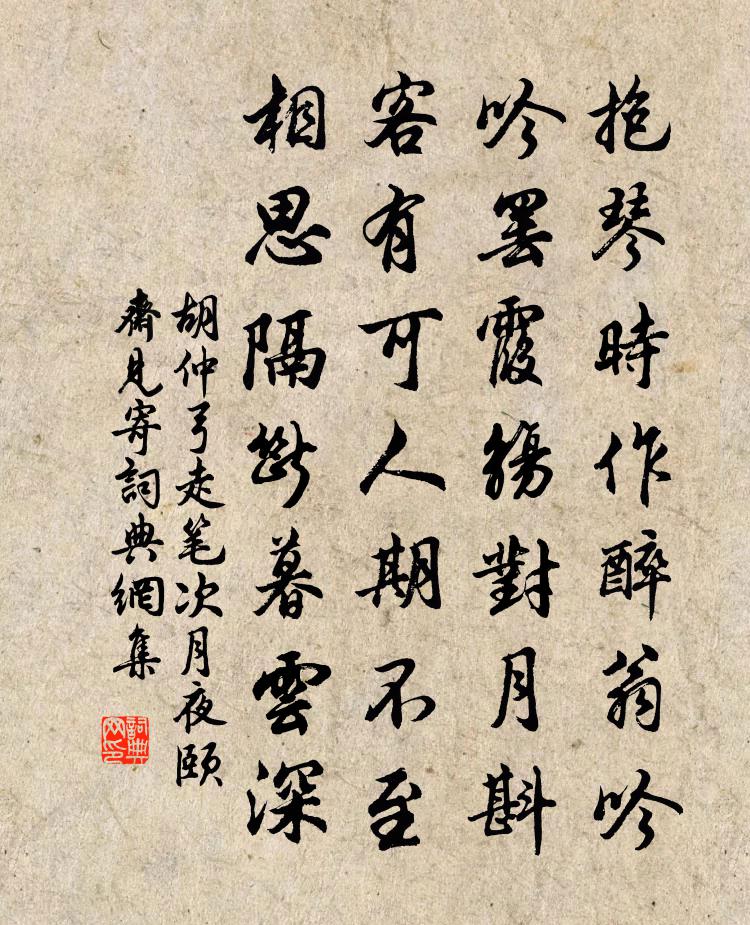 抱琴時作醉翁吟
吟罢霞觴對月斟
客有可人期不至
相思隔斷暮雲深
胡仲弓走笔次月夜頤
齋見寄詞典網集
詞典网印